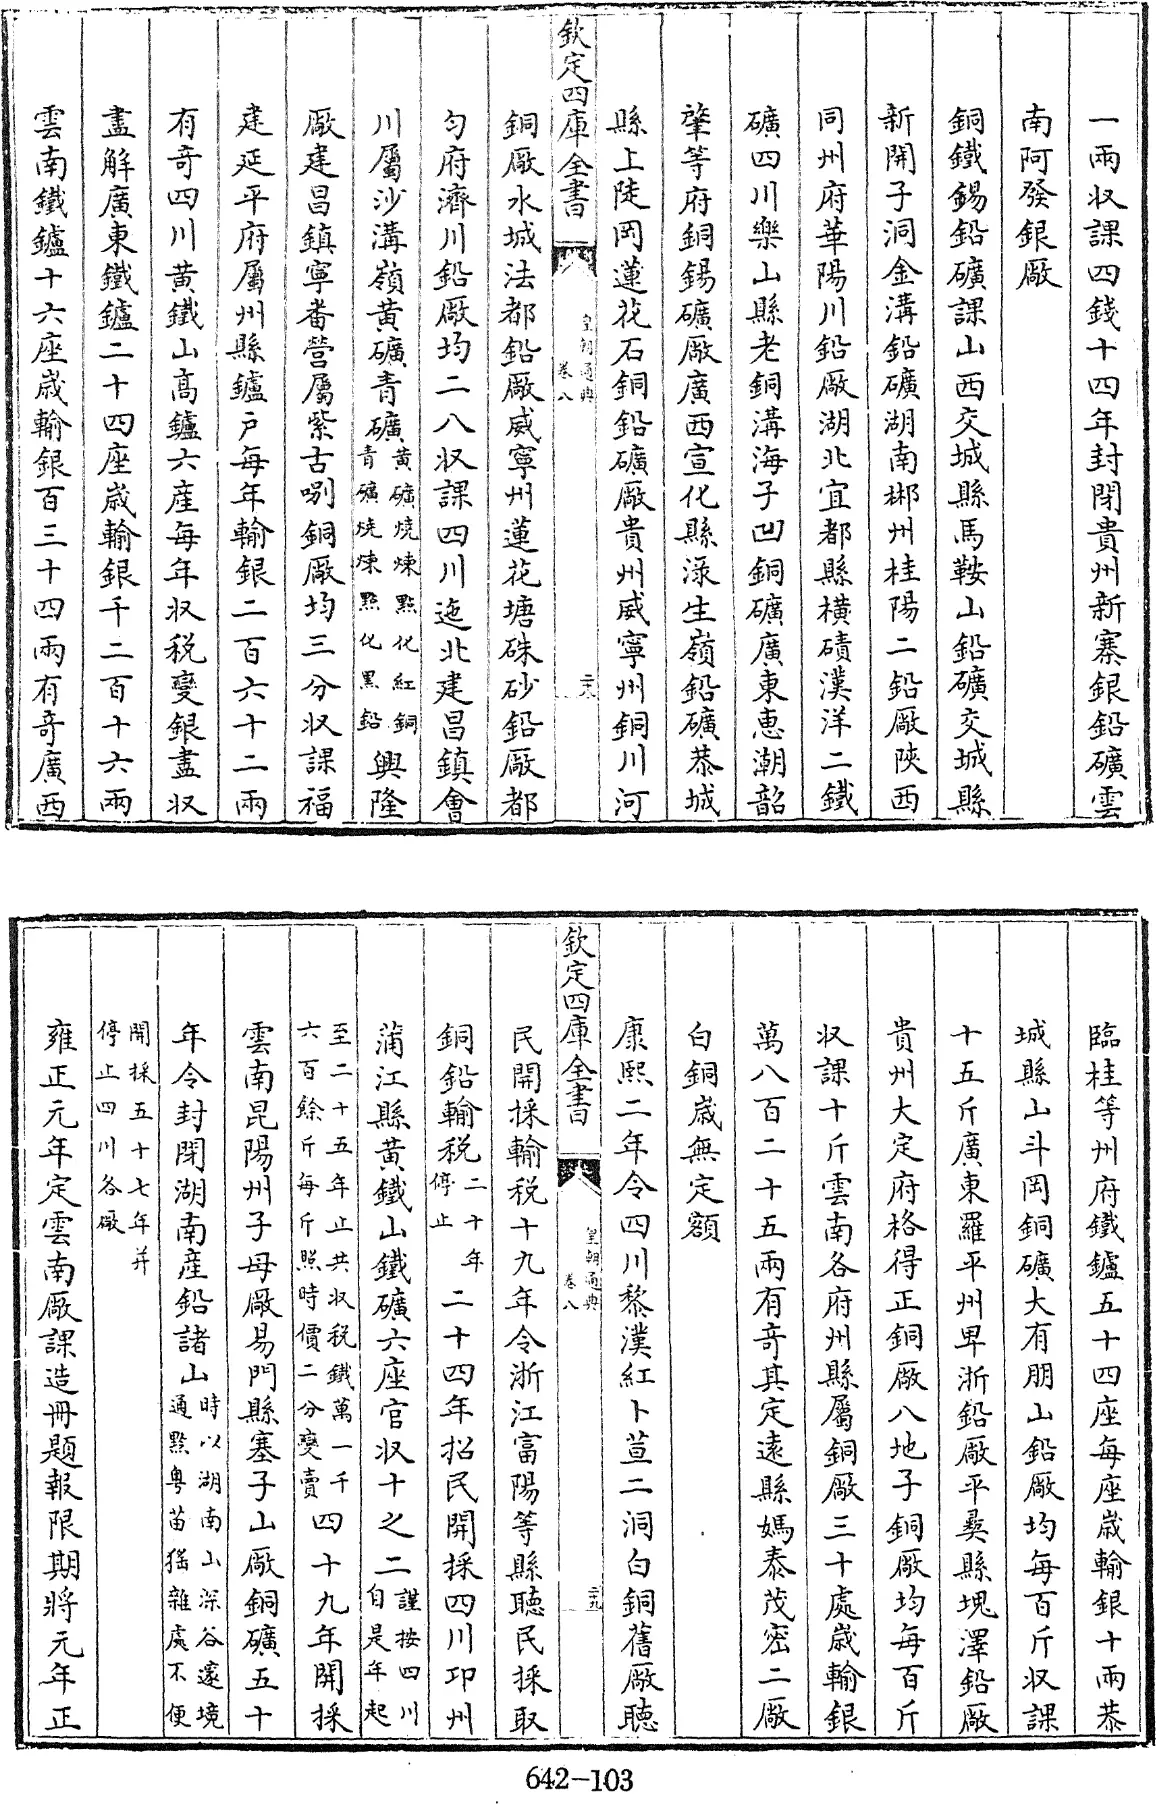 一兩収課四錢十四年封閉貴州新寨銀鉛礦雲
南阿發銀厰
銅鐵錫鉛礦課山西交城縣馬鞍山鉛礦交城縣
新開子洞金溝鉛礦湖南郴州桂陽二鉛厰陜西
同州府華陽川鉛厰湖北宜都縣横磧漢洋二鐵
礦四川樂山縣老銅溝海子凹銅礦廣東惠潮韶
肇等府銅錫礦厰廣西宣化縣渌生嶺鉛礦恭城
縣上陡岡蓮花石銅鉛礦厰貴州威寧州銅川河
欽定四庫全書
皇朝通典
卷八
銅厰水城法都鉛厰威寧州蓮花塘硃砂鉛厰都
匀府濟川鉛厰均二八収課四川迤北建昌鎮會
川屬沙溝嶺黄礦青礦黄礦燒煉點化紅銅青礦燒煉㸃化黑鉛興隆
厰建昌鎮寧番營屬紫古哵銅厰均三分収課福
建延平府屬州縣鑪户每年輸銀二百六十二兩
有奇四川黄鐵山高鑪六座每年収税變銀盡収
盡解廣東鐵鑪二十四座嵗輸銀千二百十六兩
雲南鐵鑪十六座嵗輸銀百三十四兩有奇廣西
臨桂等州府鐵鑪五十四座每座嵗輸銀十兩恭
城縣山斗岡銅礦大有朋山鉛厰均每百斤収課
十五斤廣東羅平州卑浙鉛厰平彞縣塊澤鉛厰
貴州大定府格得正銅厰八地子銅厰均每百斤
収課十斤雲南各府州縣屬銅厰三十處嵗輸銀
萬八百二十五兩有奇其定遠縣媽泰茂密二厰
白銅嵗無定額
康熙二年令四川黎漢紅卜苴二洞白銅舊厰聽
欽定四庫全書
皇朝通典
卷八
民開採輸税十九年令浙江富陽等縣聽民採取
銅鉛輸税二十年停止二十四年招民開採四川邛州
蒲江縣黄鐵山鐵礦六座官収十之二謹按四川自是年起
至二十五年止共収税鐵萬一千六百餘斤每斤照時價二分變賣四十九年開採
雲南昆陽州子母厰易門縣塞子山厰銅礦五十
年令封閉湖南産鉛諸山時以湖南山深谷邃境通黔粤苗猺雜處不便
開採五十七年并停止四川各厰
雍正元年定雲南厰課造冊題報限期將元年正
642-103